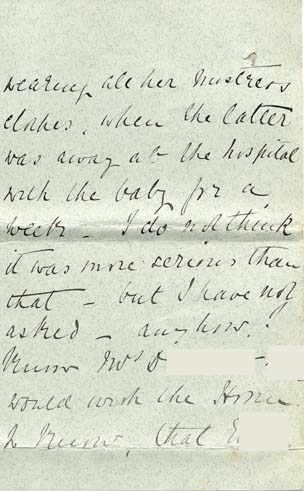 wearing all her mistress
clothes, when the latter
was away at the hospital
with the baby for a
week – I do not think
it was more serious than
that – but I have not
asked – anyhow, I
know Mrs D
would wish the Home
to know, that E